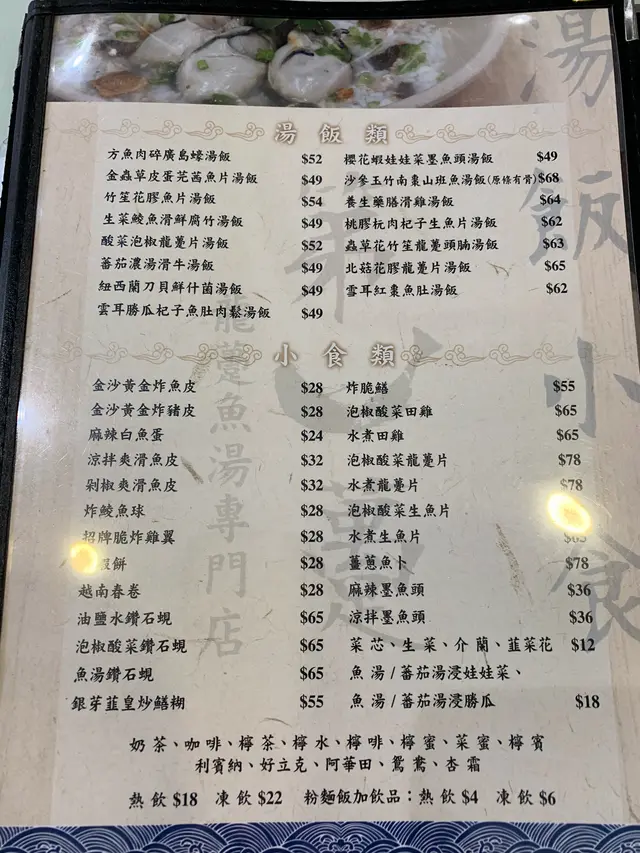 湯飯類
方魚肉碎廣島蠔湯飯 $52 櫻花蝦娃娃菜墨魚頭湯飯 $49
金蟲草皮蛋芫茜魚片湯飯 $49 沙參玉竹南棗山班魚湯飯(原條有骨) $68
竹笙花膠魚片湯飯 $54 養生藥膳滑雞湯飯 $64
生菜鯪魚滑鮮腐竹湯飯 $49 桃膠杬肉杞子生魚片湯飯 $62
酸菜泡椒龍躉片湯飯 $52 蟲草花竹笙龍躉頭腩湯飯 $63
蕃茄濃湯滑牛湯飯 $49 北菇花膠龍躉片湯飯 $65
紐西蘭刀貝鮮什菌湯飯 $49 雪耳紅棗魚肚湯飯 $62
雲耳勝瓜杞子魚肚肉鬆湯飯 $49
小食類
金沙黃金炸魚皮 $28 炸脆鱔 $55
金沙黃金炸豬皮 $28 泡椒酸菜田雞 $65
麻辣白魚蛋 $24 水煮田雞 $65
涼拌爽滑魚皮 $32 泡椒酸菜龍躉片 $78
剁椒爽滑魚皮 $32 水煮龍躉片 $78
炸鯪魚球 $28 泡椒酸菜生魚片
招牌脆炸雞翼 $28 水煮生魚片
蝦餅 $28 薑蔥魚卜 $78
越南春卷 $28 麻辣墨魚頭 $36
油鹽水鑽石蜆 $65 涼拌墨魚頭 $36
泡椒酸菜鑽石蜆 $65 菜芯、生菜、介蘭、韮菜花 $12
魚湯鑽石蜆 $65 魚湯/蕃茄湯浸娃娃菜、
銀芽韮皇炒鱔糊 $55 魚湯/蕃茄湯浸勝瓜 $18
奶茶、咖啡、檸茶、檸水、檸啡、檸蜜、菜蜜、檸賓
利賓納、好立克、阿華田、鴛鴦、杏霜
熱飲 $18 凍飲 $22 粉麵飯加飲品：熱飲 $4 凍飲 $6
湯飯小食
龍躉魚湯專門店